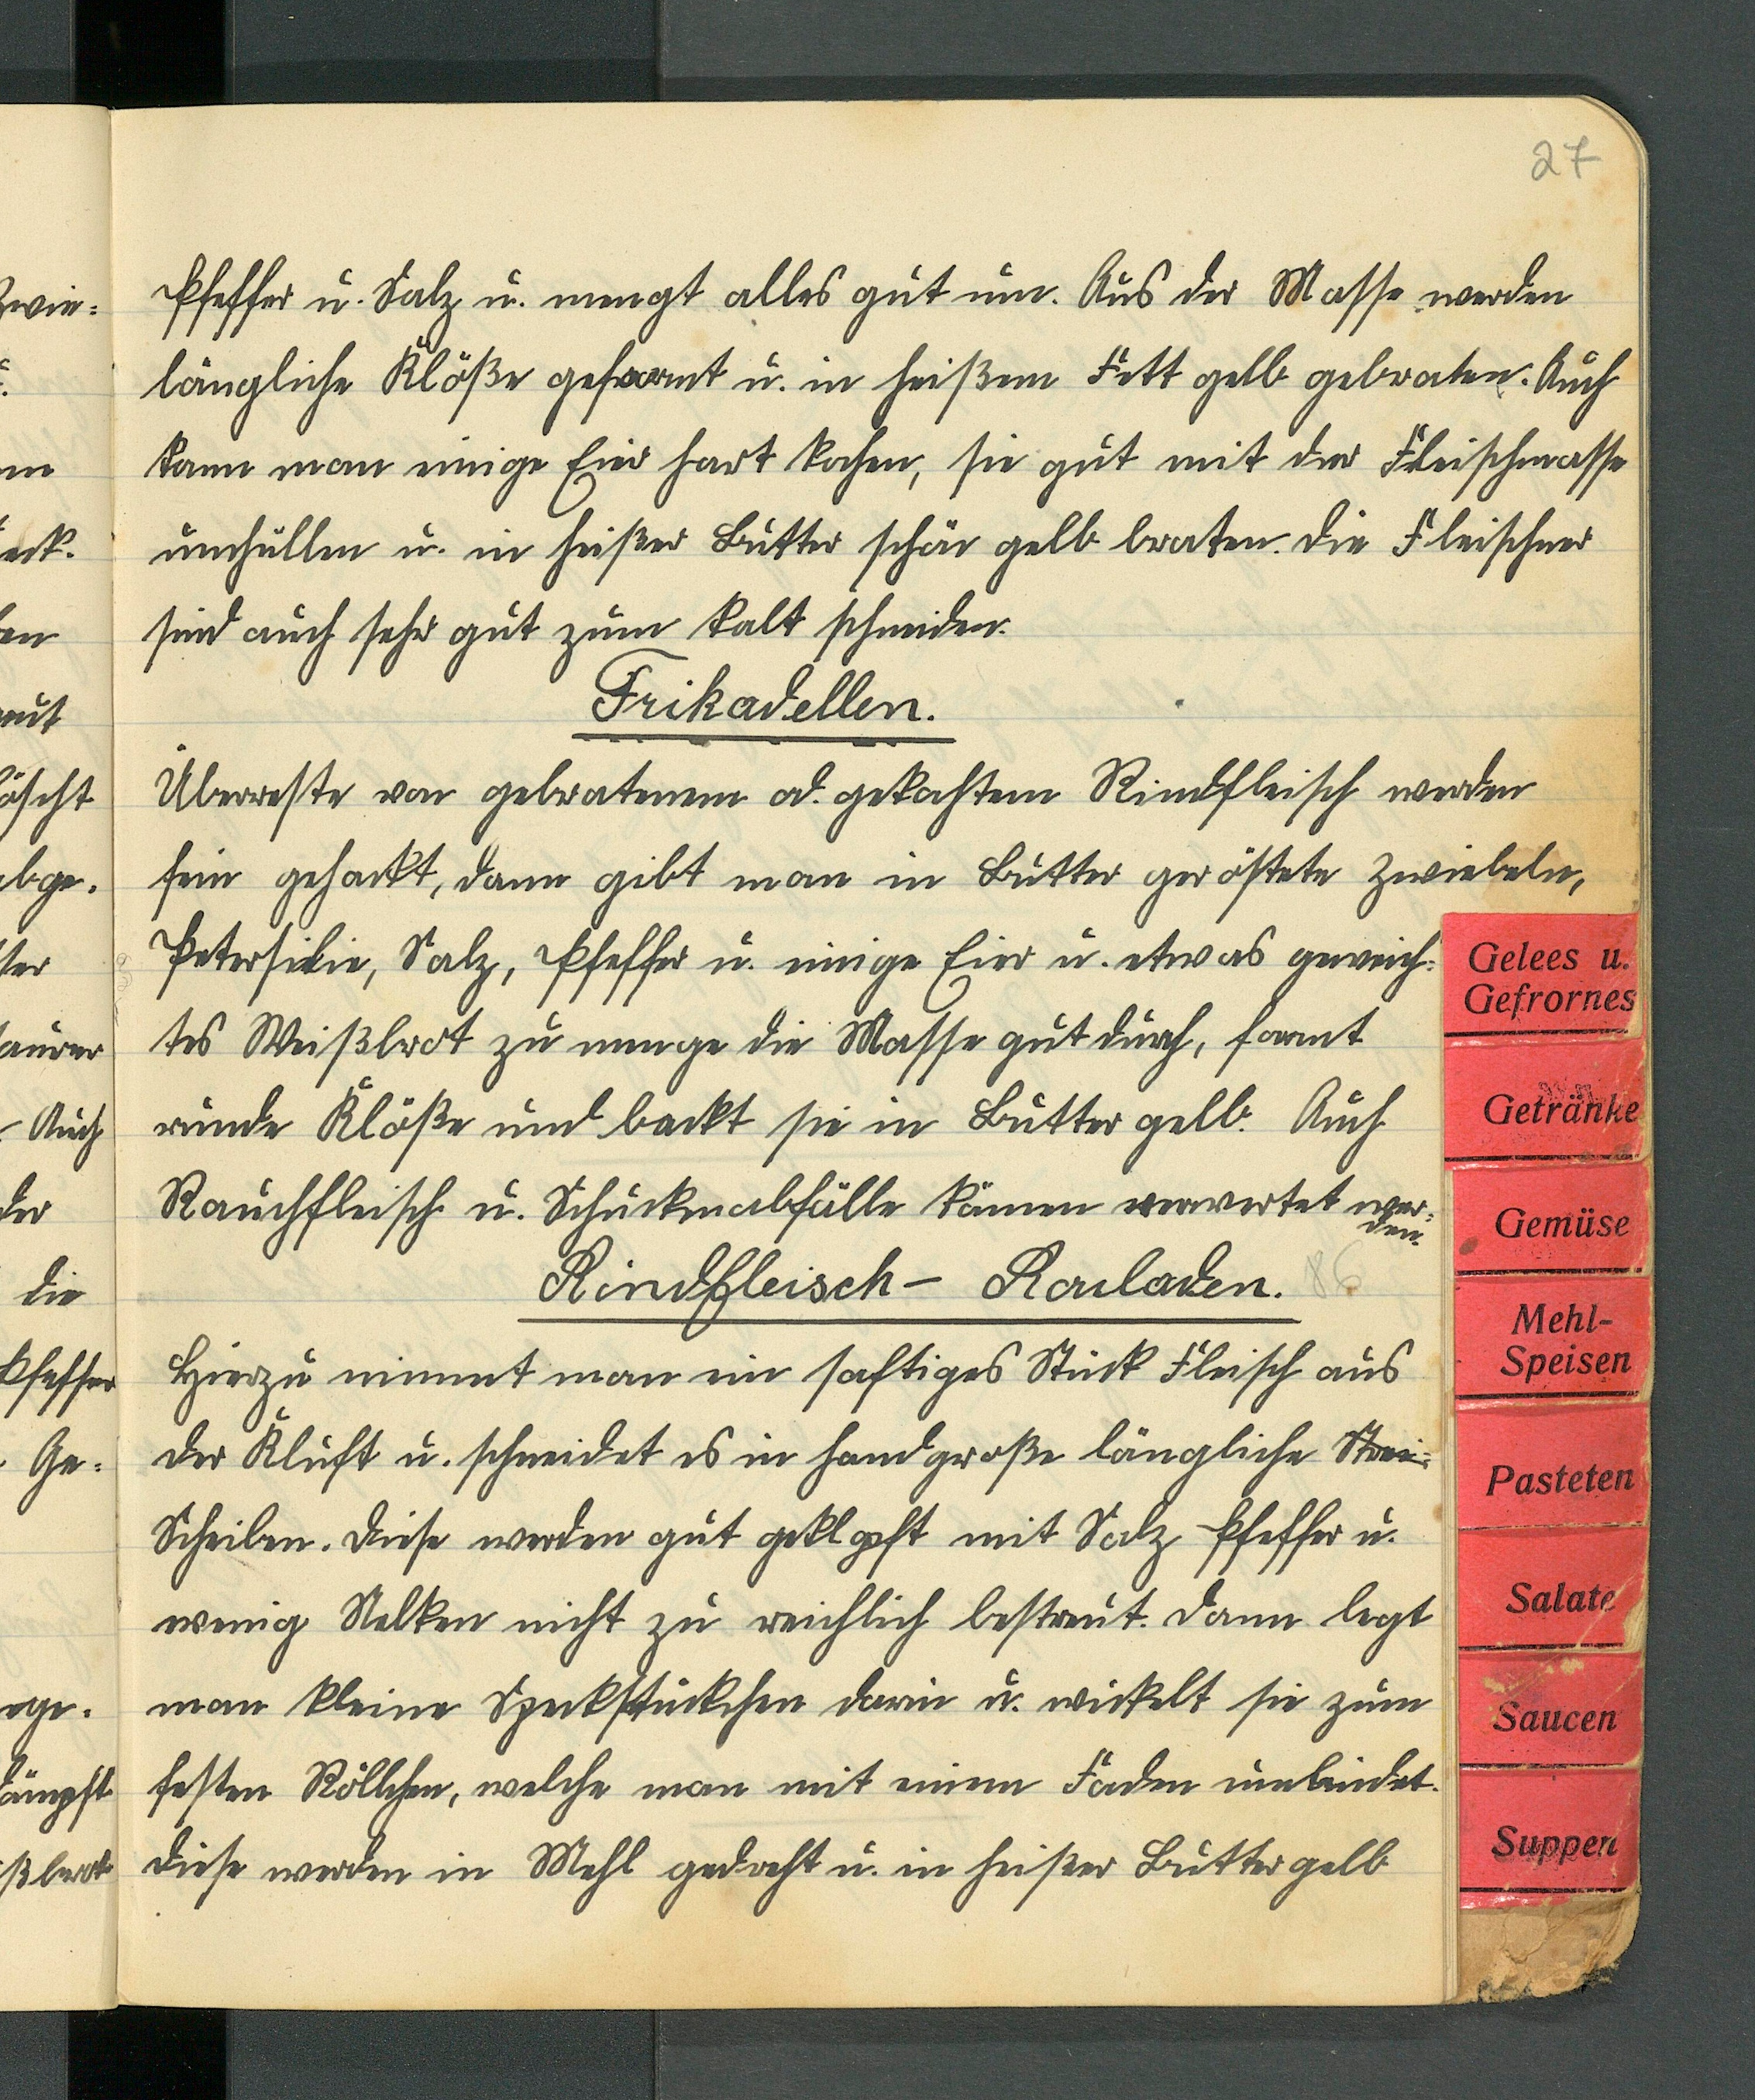 27
Pfeffer u. Salz u. mengt alles gut um. Aus der Masse werden
längliche Klöße geformt u. in heißem Fett gelb gebraten. Auch
kann man einige Eier hart kochen, sie gut mit der Fleischmasse
umhüllen u. in heißer Butter schön gelb braten. Die Fleischner
sind auch sehr gut zum kalt schneiden.
Frikadellen.
Überreste von gebratenem od. gekochtem Rindfleisch werden
fein gehackt, dann gibt man in Butter geröstete Zwiebeln,
Petersilie, Salz, Pfeffer u. einige Eier u. etwas geweich-
tes Weißbrot zu menge die Masse gut durch, formt
runde Klöße und backt sie in Butter gelb. Auch
Rauchfleisch u. Schinkenabfälle können verwertet wer-
den.
Rindfleisch - Rouladen. 86
Hierzu nimmt man ein saftiges Stück Fleisch aus
der Kluft u. schneidet es in handgroße längliche Strei-
Scheiben. Diese werden gut geklopft mit Salz Pfeffer u.
wenig Nelken nicht zu reichlich bestreut. Dann legt
man kleine Speckstückchen darin u. wickelt sie zum
festen Röllchen, welche man mit einem Faden umbindet.
Diese werden in Mehl gedreht u. in heißer Butter gelb
Gelees u.
Gefrornes
Getränke
Gemüse
Mehl-
Speisen
Pasteten
Salate
Saucen
Suppen